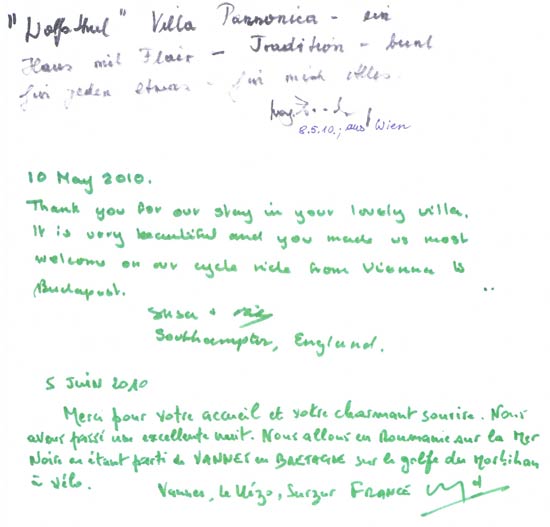 "Wolfsthal" Villa Pannonica - ein
Haus mit Flair - Tradition - bunt
für jeden etwas - für mich Alles.
8.5.10., aus Wien
10 May 2010.
Thank you for our stay in your lovely villa.
It is very beautiful and you made us most
welcome on our cycle ride from Vienna to
Budapest.
Susan +
Southampton, England.
5 JUIN 2010
Merci pour votre accueil et votre charmant sourire. Nous
avons passé une excellente nuit. Nous allons en Roumanie sur la Mer
Noire en étant parti de VANNES en BRETAGNE sur le golfe du Morbihan
à vélo.
Vannes, le Hézo, Surzur FRANCE